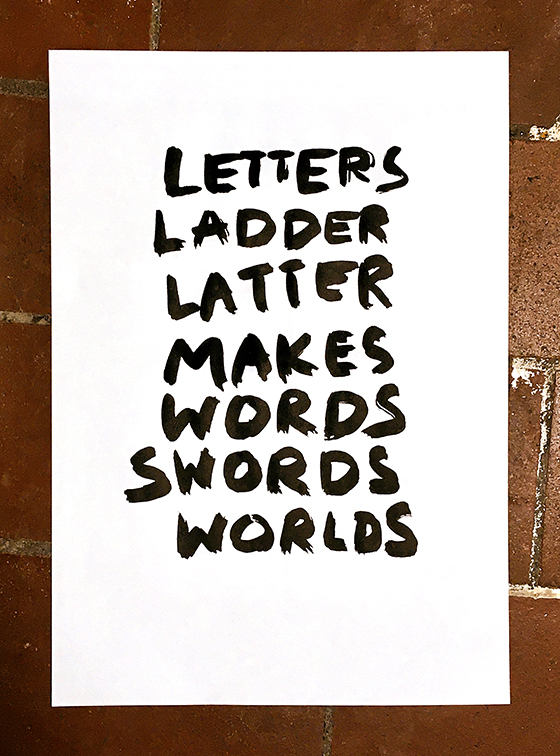 LETTERS
LADDER
LATTER
MAKES
WORDS
SWORDS
WORLDS